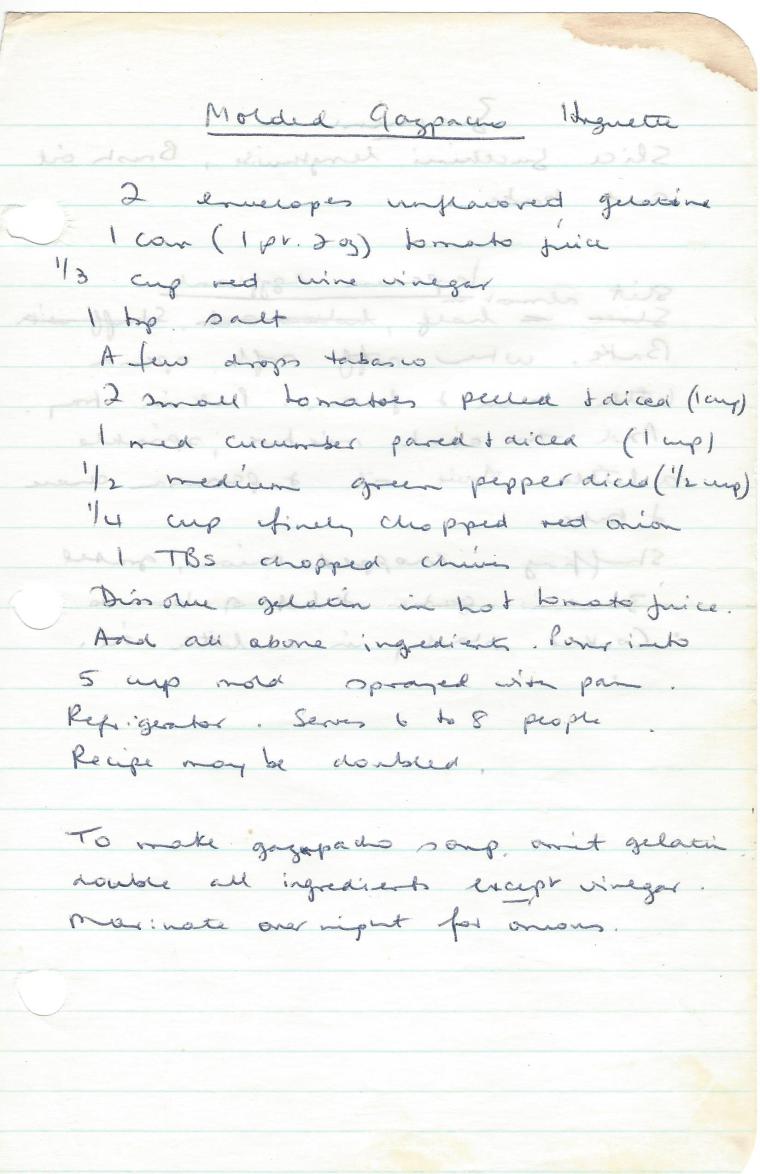 Molded Gazpacho Huguette
2 envelopes unflavored gelatine
1 can (1 pt. 2 oz) tomato juice
1/3 cup red wine vinegar
1 tsp salt
A few drops tabasco
2 small tomatoes peeled & diced (1 cup)
1 med cucumber pared & diced (1 cup)
1/2 medium green pepper diced (1/2 cup)
1/4 cup finely chopped red onion
1 TBS chopped chives
Dissolve gelatin in hot tomato juice.
Add all above ingredients. Pour into
5 cup mold sprayed with pam.
Refrigerator. Serves 6 to 8 people.
Recipe may be doubled.
To make gazpacho soup, omit gelatin
double all ingredients except vinegar.
Marinate over night for onions.